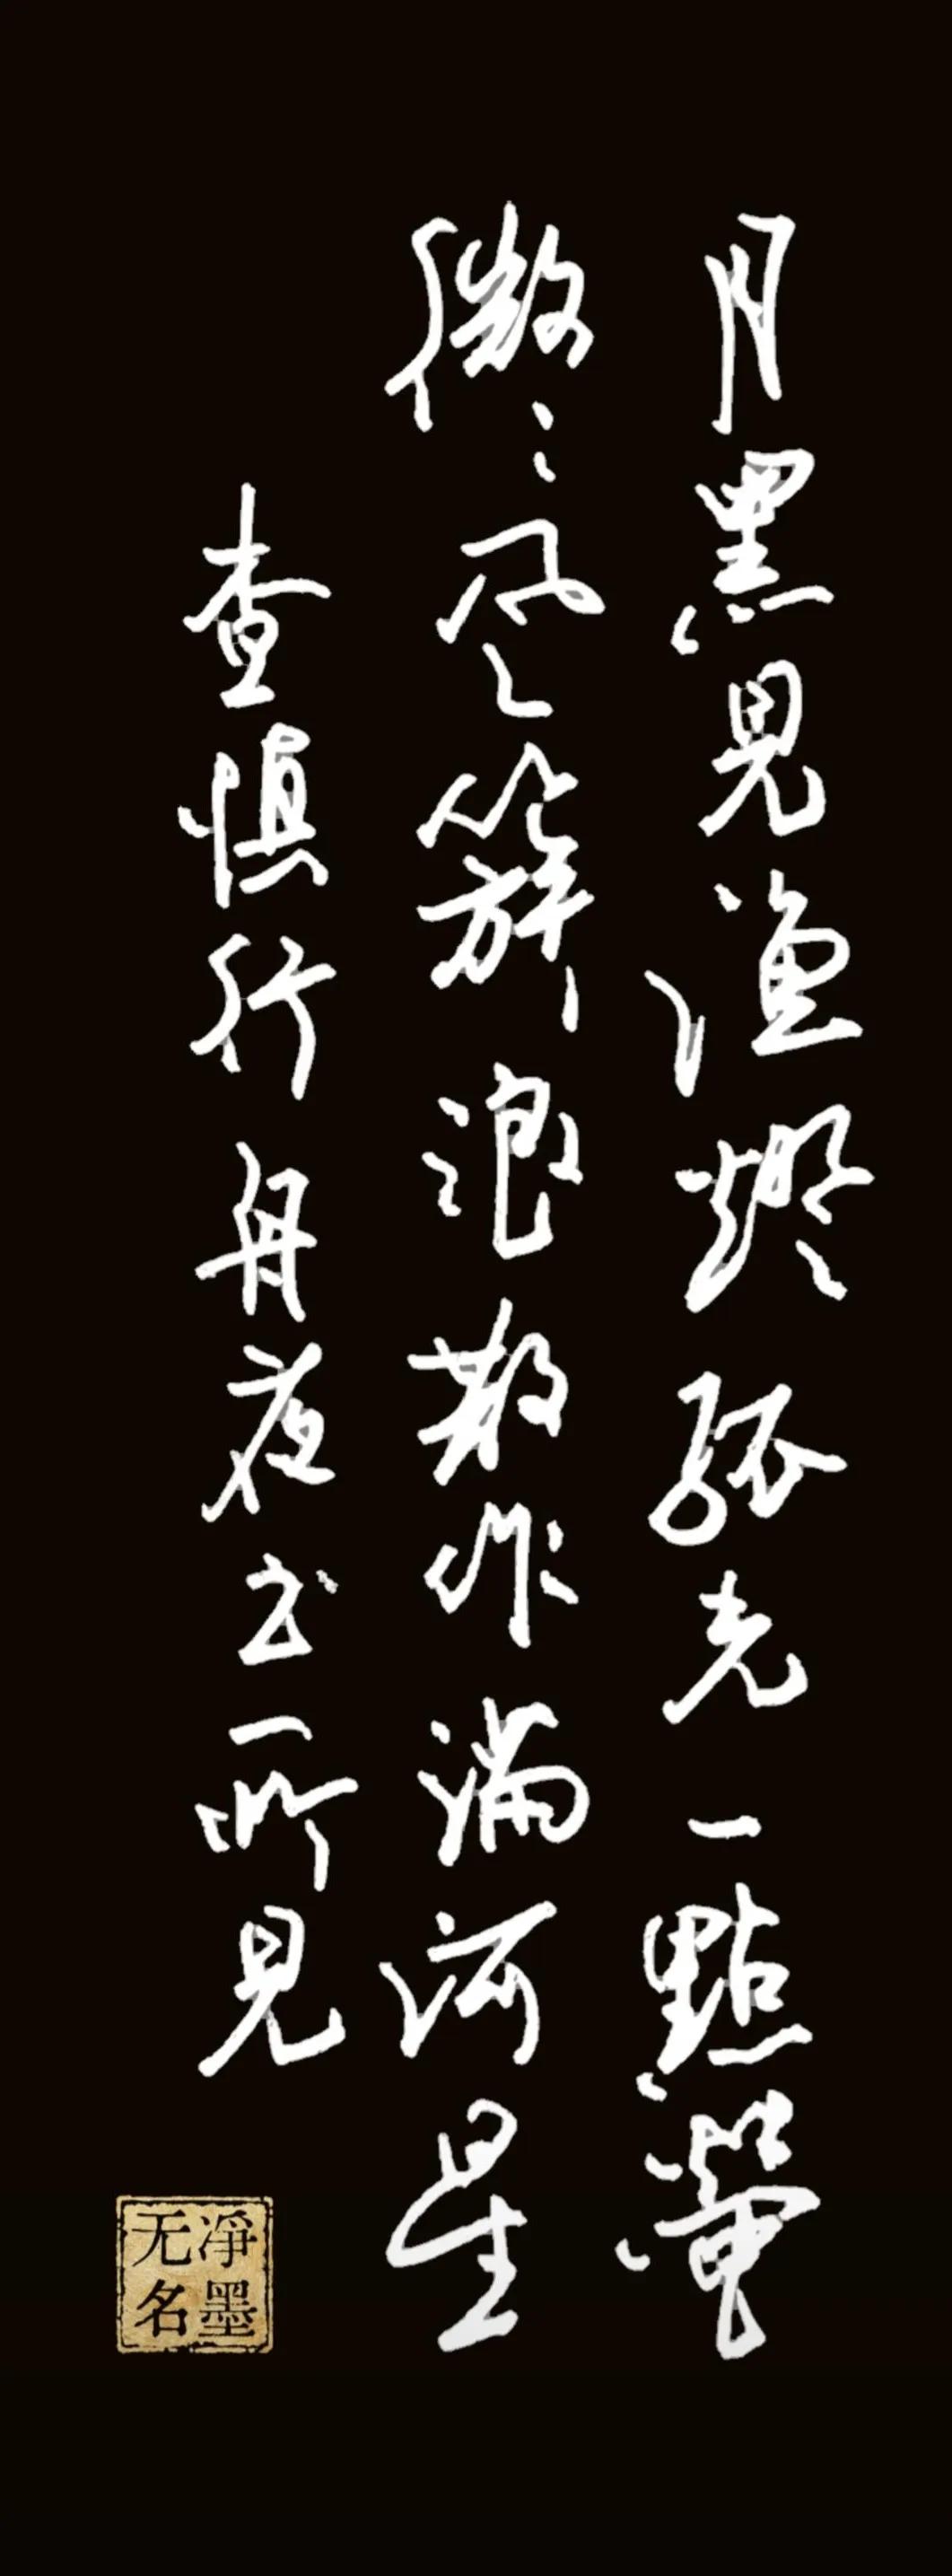 月黑見漁燈孤光一點螢
微ミ風簇浪散作滿河星
查慎行舟夜书一所見
净墨
无名